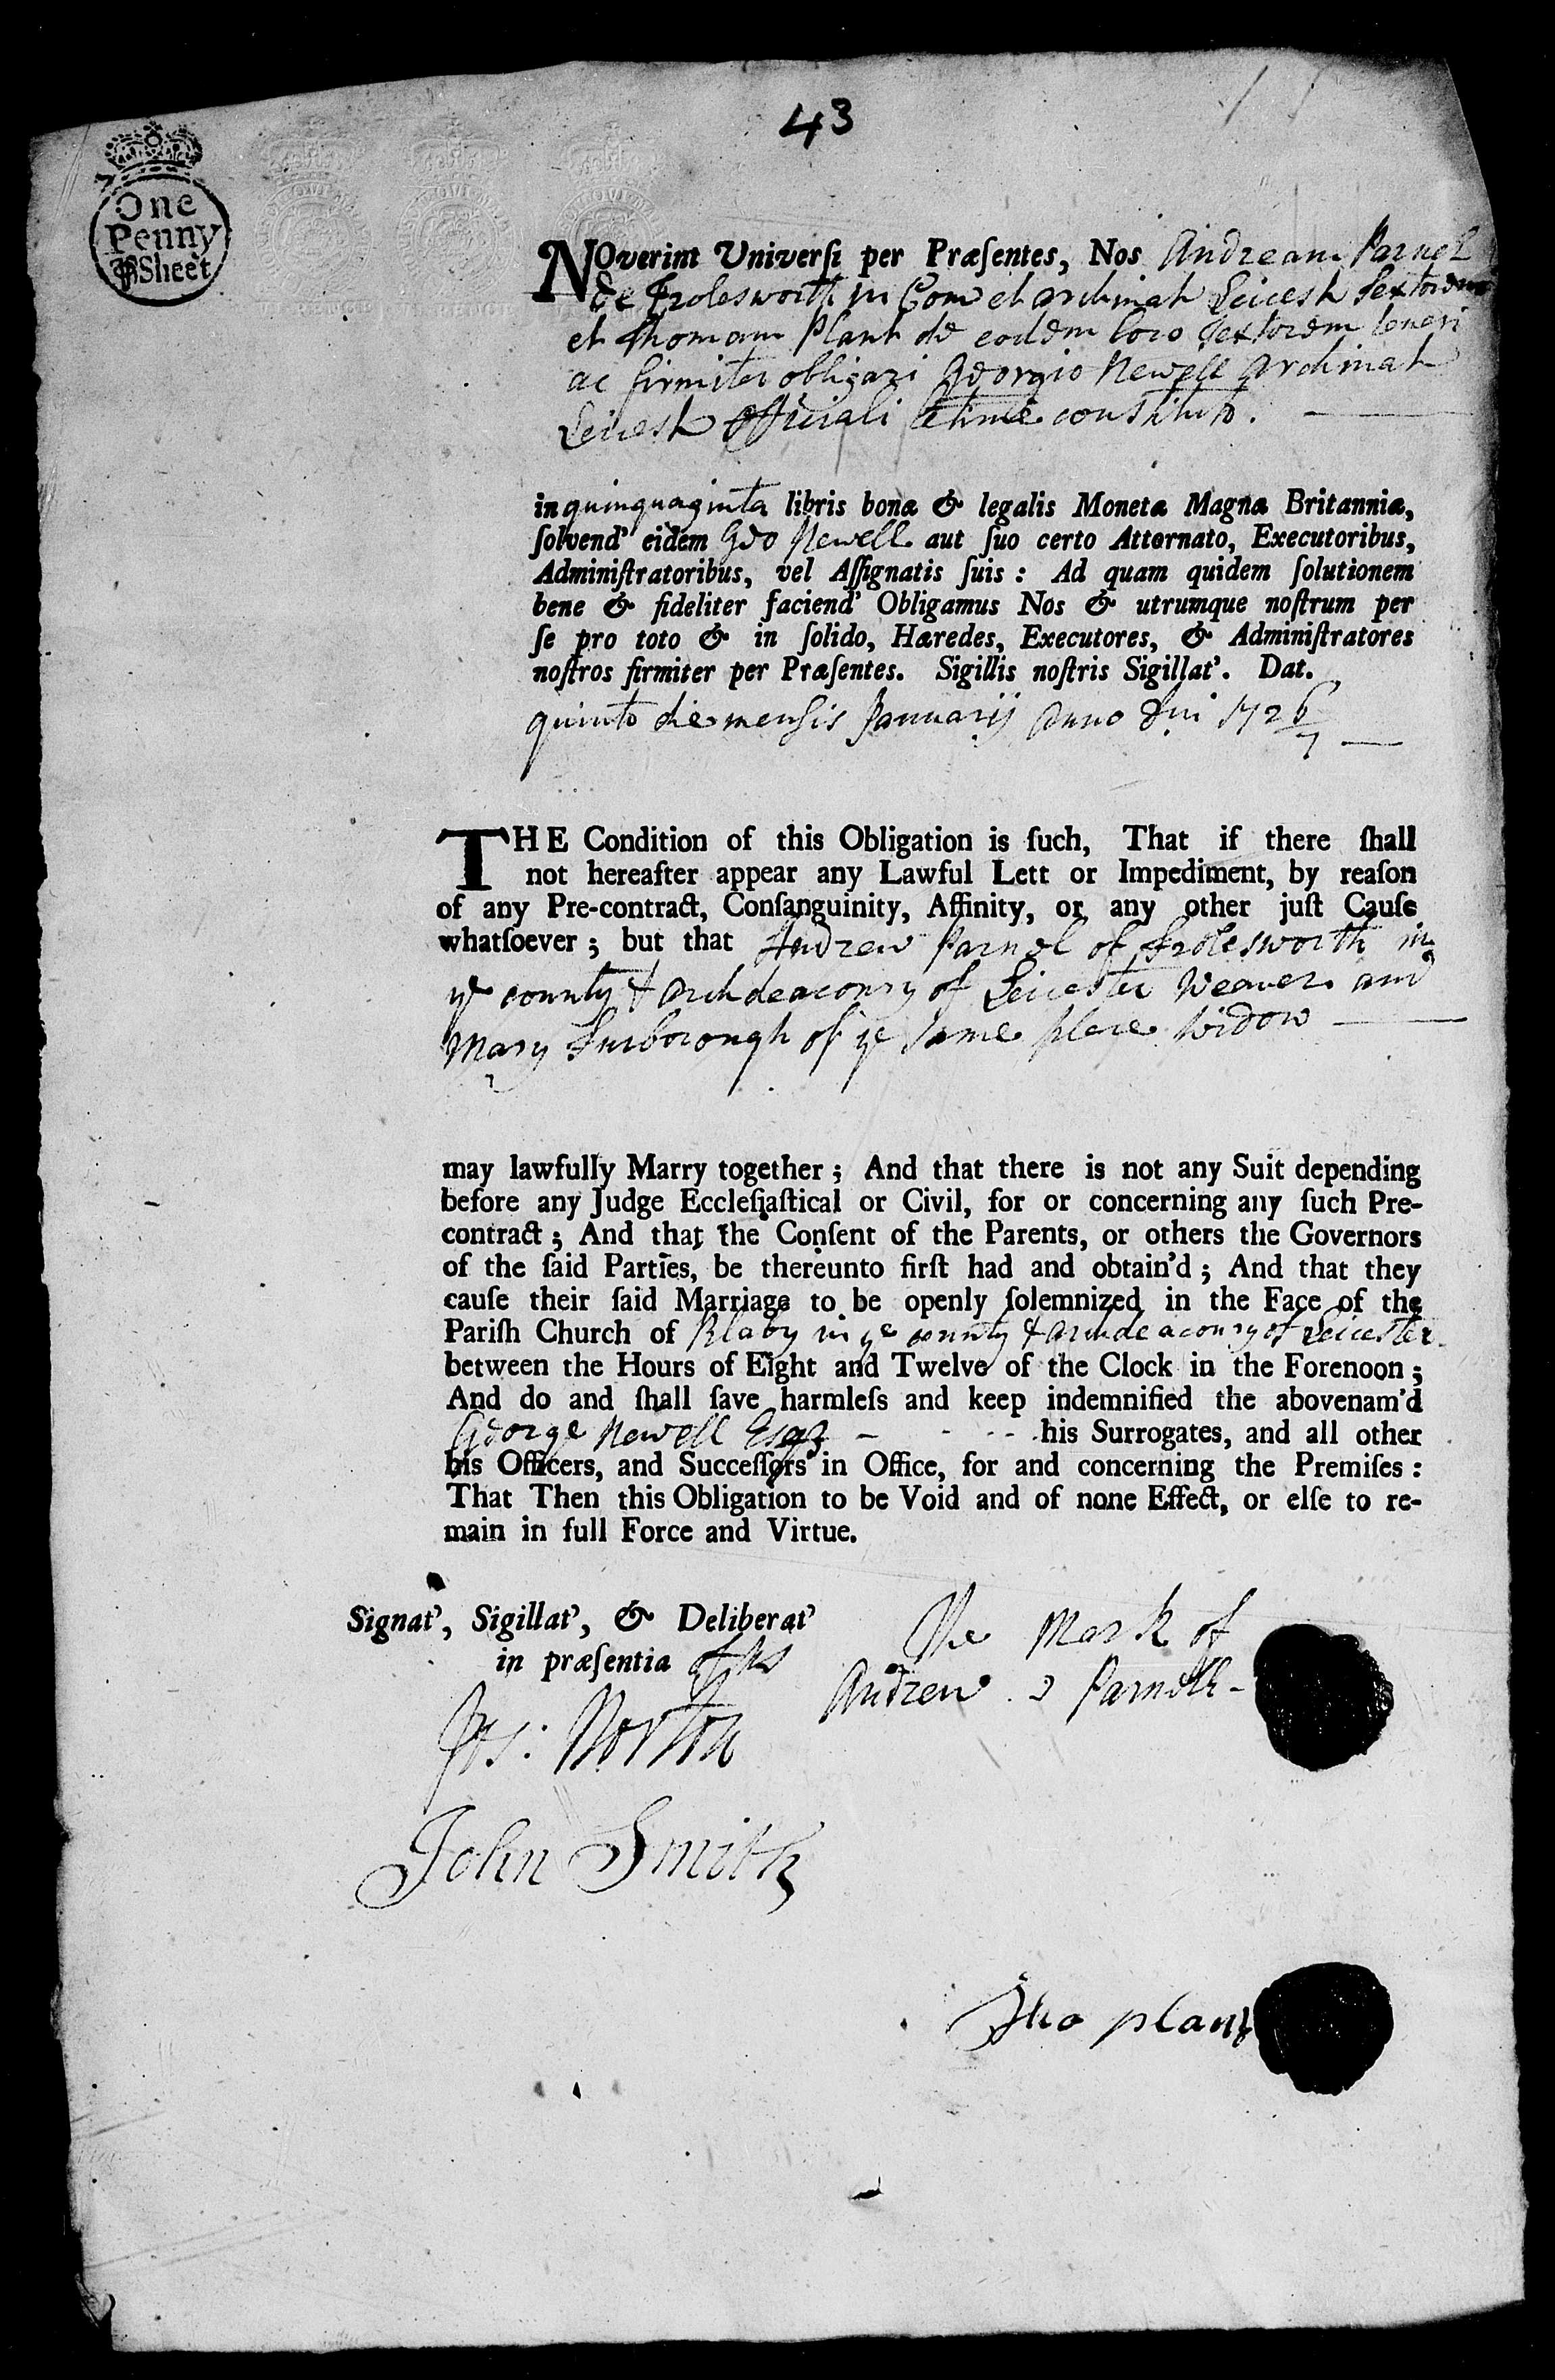 43
One
Penny
℔ Sheet
NOverint Universi per Præsentes, Nos Andream Parnel
de Frolesworth in Com et Archinat Leicest Textorem
et Thomam Plant de eodem loco Textorem teneri
ac firmiter obligari Georgio Newell Archinat
Leicest Officiali constituto.
in quinquaginta libris bonæ & legalis Monetæ Magnæ Britanniæ,
ſolvend' eidem Geo Newell aut ſuo certo Attornato, Executoribus,
Adminiſtratoribus, vel Aſſignatis ſuis : Ad quam quidem ſolutionem
bene & fideliter faciend' Obligamus Nos & utrumque noſtrum per
ſe pro toto & in ſolido, Hæredes, Executores, & Adminiſtratores
noſtros firmiter per Præſentes. Sigillis noſtris Sigillat'. Dat.
quinto die mensis Januarij Anno Dni 1726/7
THE Condition of this Obligation is ſuch, That if there ſhall
not hereafter appear any Lawful Lett or Impediment, by reaſon
of any Pre-contract, Conſanguinity, Affinity, or any other juſt Cauſe
whatſoever ; but that Andrew Parnel of Frolesworth in
ye county & Archdeaconry of Leicester Weaver and
Mary of ye same place Widow
may lawfully Marry together ; And that there is not any Suit depending
before any Judge Eccleſiaſtical or Civil, for or concerning any ſuch Pre-
contract ; And that the Conſent of the Parents, or others the Governors
of the ſaid Parties, be thereunto firſt had and obtain'd ; And that they
cauſe their ſaid Marriage to be openly ſolemnized in the Face of the
Pariſh Church of Blaby in ye county & Archdeaconry of Leicester
between the Hours of Eight and Twelve of the Clock in the Forenoon ;
And do and ſhall ſave harmleſs and keep indemnified the abovenam'd
George Newell Esqr his Surrogates, and all other
his Officers, and Succeſſors in Office, for and concerning the Premiſes :
That Then this Obligation to be Void and of none Effect, or elſe to re-
main in full Force and Virtue.
Signat', Sigillat', & Deliberat'
in præſentia of us
Jos: Norton
John Smith
The Mark of
Andrew Parnell
Tho plant